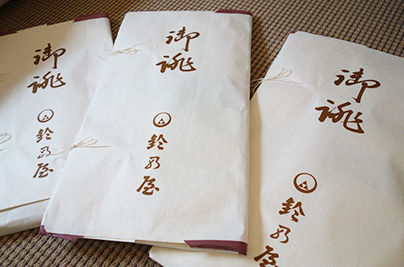 御誂
鈴乃屋
御誂
鈴乃屋
御誂
鈴乃屋